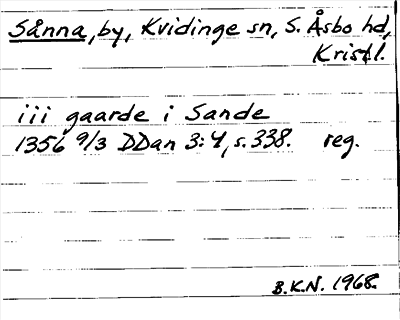 Sånna, by, Kvidinge sn, S. Åsbo hd,
Kristl.
iii gaarde i Sande
1356 9/3 DDan 3:4, s. 338. reg.
B.K.N. 1968.